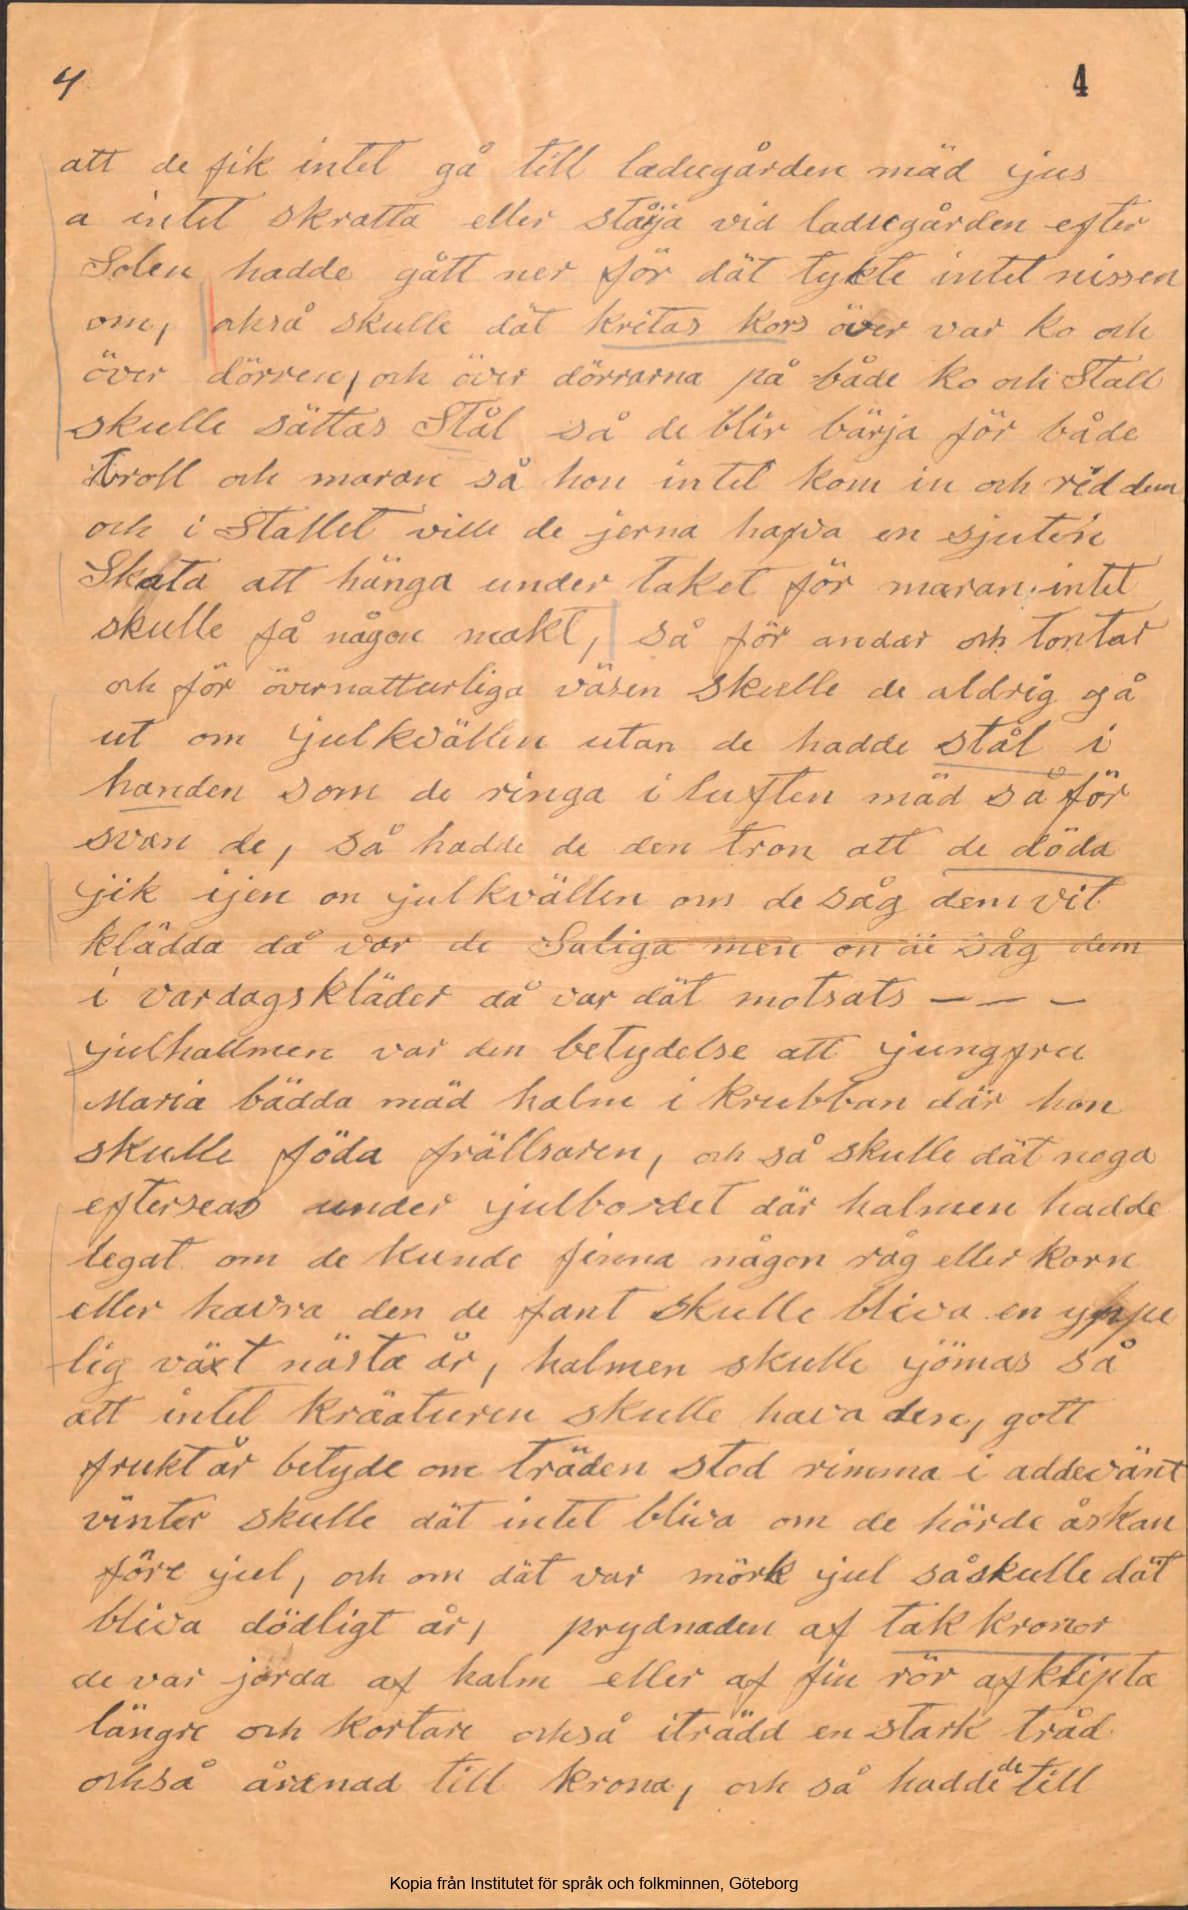 4 4
att de fik intet gå till ladugården mäd jus
a intet skratta eller ståja vid ladugården efter
Solen hadde gått ner för dät tykte intet nissen
om, också skulle dät kritas kors över var ko och
över dörren, och över dörrarna på både ko och Stall
skulle sättas Stål så de blir bärja för både
troll och maran så hon intet kom in och red dem
och i Stallet ville de jerna hafva en sjuten
Skata att hänga under taket för maran intet
skulle få någon makt, så för andar och tontar
och för övernatturliga väsen skulle de aldrig gå
ut om julkvällen utan de hadde stål i
handen som de ringa i luften mäd så för
svan de, så hadde de den tron att de döda
jik ijen on julkvällen om de såg dem vit
klädda då var de Saliga men on de såg dem
i vardagskläder då var dät motsats – – –
julhallmen var den betydelse att jungfru
Maria bädda mäd halm i krubban där hon
skulle föda frällsaren, och så skulle dät noga
efterseas under julbordet där halmen hadde
legat om de kunde finna någon råg eller korn
eller havra den de fant skulle bliva en yppe
lig växt nästa år, halmen skulle jömas så
att intet kräaturen skulle hava den, gott
frukt år betyde om träden stod rimma i addevänt
vinter skulle dät intet bliva om de hörde åskan
före jul, och om dät var mörk jul så skulle dät
bliva dödligt år, prydnaden af takkronor
de var jorda af halm eller af fin rör afklipta
längre och kortare också iträdd en stark tråd
också åranad till krona, och så hadde de till
Kopia från Institutet för språk och folkminnen, Göteborg